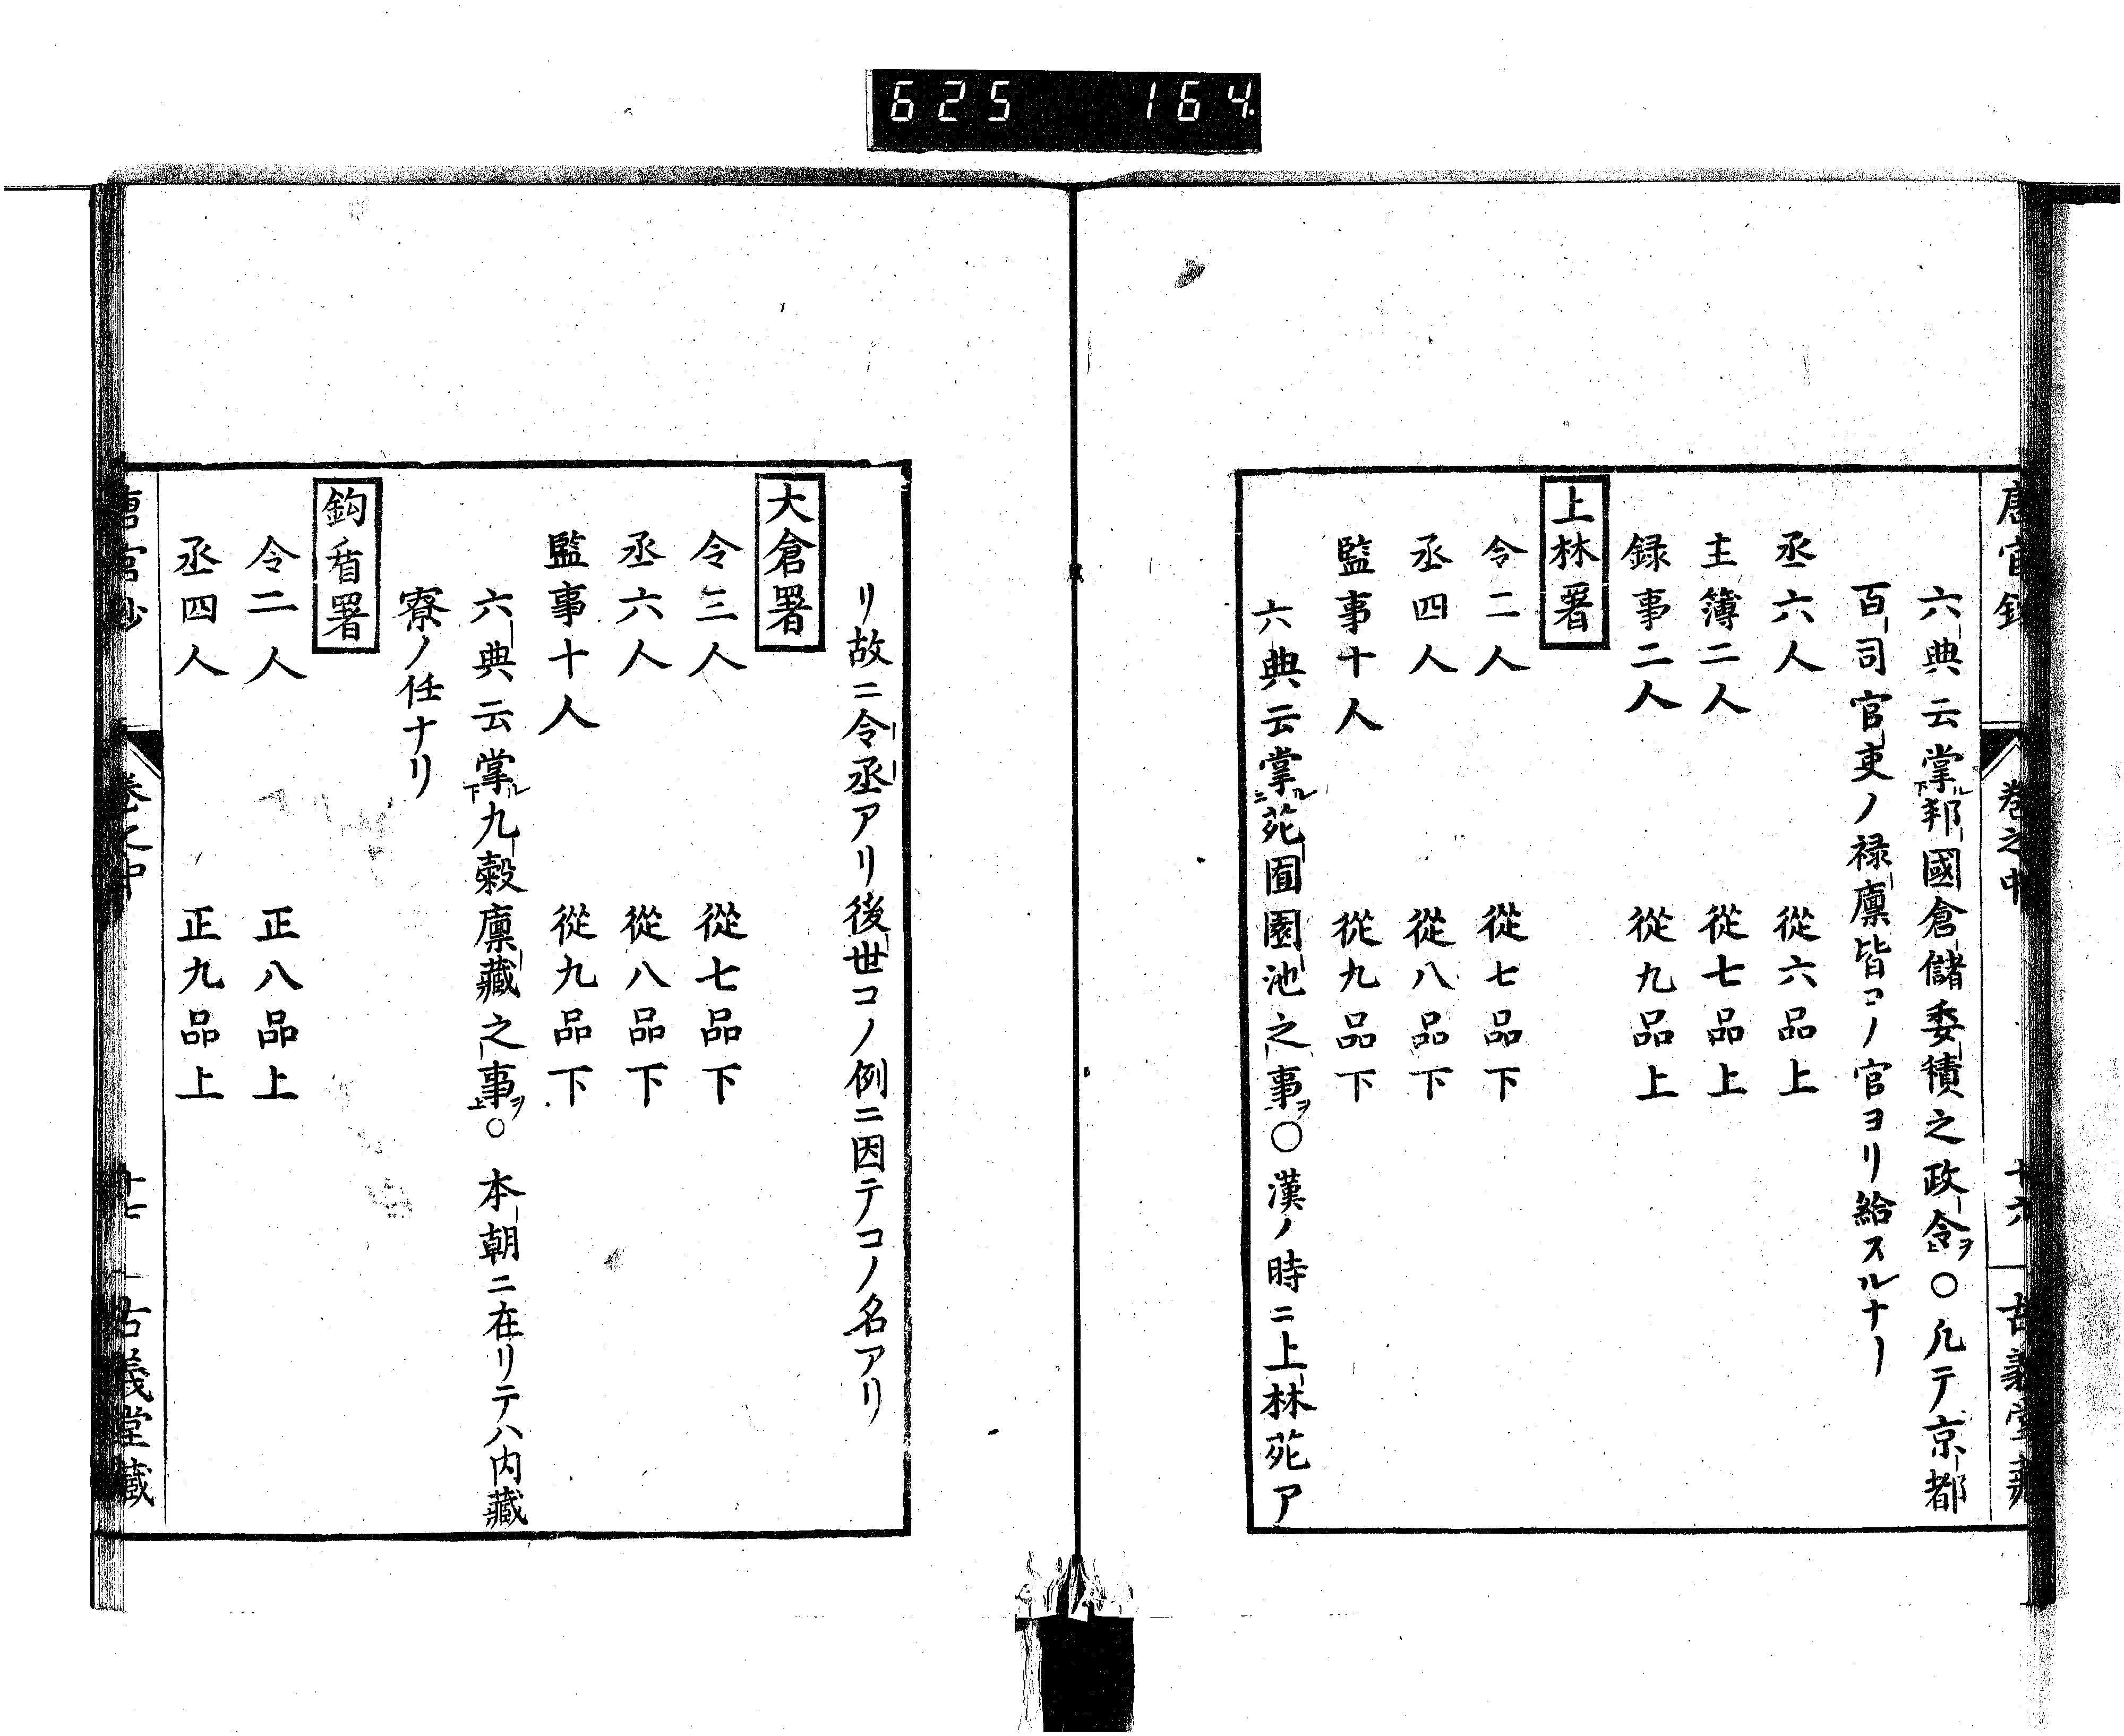 625 164
唐官鈔 卷之中 十六 古義堂藏
六典云掌ル下邦國倉儲委積之政令ヲ上○凡テ京都
百司官吏ノ禄廩皆コノ官ヨリ給スルナリ
丞六人 從六品上
主簿二人 從七品上
録事二人 從九品上
上林署
令二人 從七品下
丞四人 從八品下
監事十人 從九品下
六典云掌ル二苑囿園池之事ヲ○漢ノ時ニ上林苑ア
リ故ニ令丞アリ後世コノ例ニ因テコノ名アリ
大倉署
令三人 從七品下
丞六人 從八品下
監事十人 從九品下
六典云掌ル下九穀廩藏之事ヲ上○本朝ニ在リテハ内藏
寮ノ任ナリ
鈎盾署
令二人 正八品上
丞四人 正九品上
唐官鈔 卷之中 十七 古義堂藏